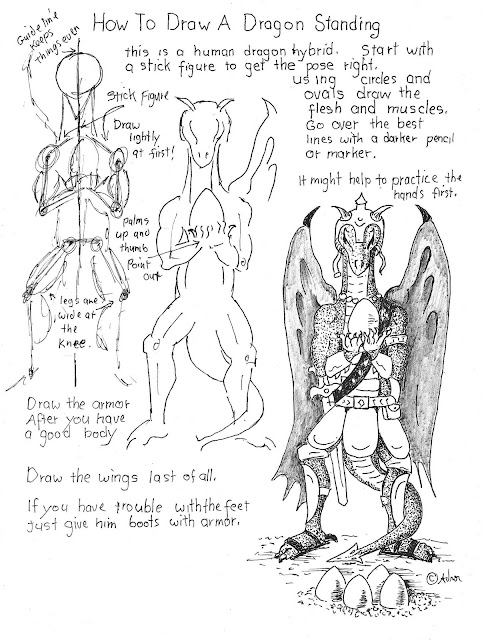 How To Draw A Dragon Standing
Guideline
Keeps
Things even
this is a human dragon hybrid. Start with
a stick figure to get the pose right.
Using circles and
ovals draw the
flesh and muscles.
Go over the best
lines with a darker pencil
or marker.
It might help to practice the
hands first.
Stick Figure
Draw
lightly
at first!
palms
up and
thumb
Point
out
legs are
wide at
the
Knee.
Draw the armor
After you have
a good body
Draw the wings last of all.
If you have trouble with the feet
Just give him boots with armor.
©